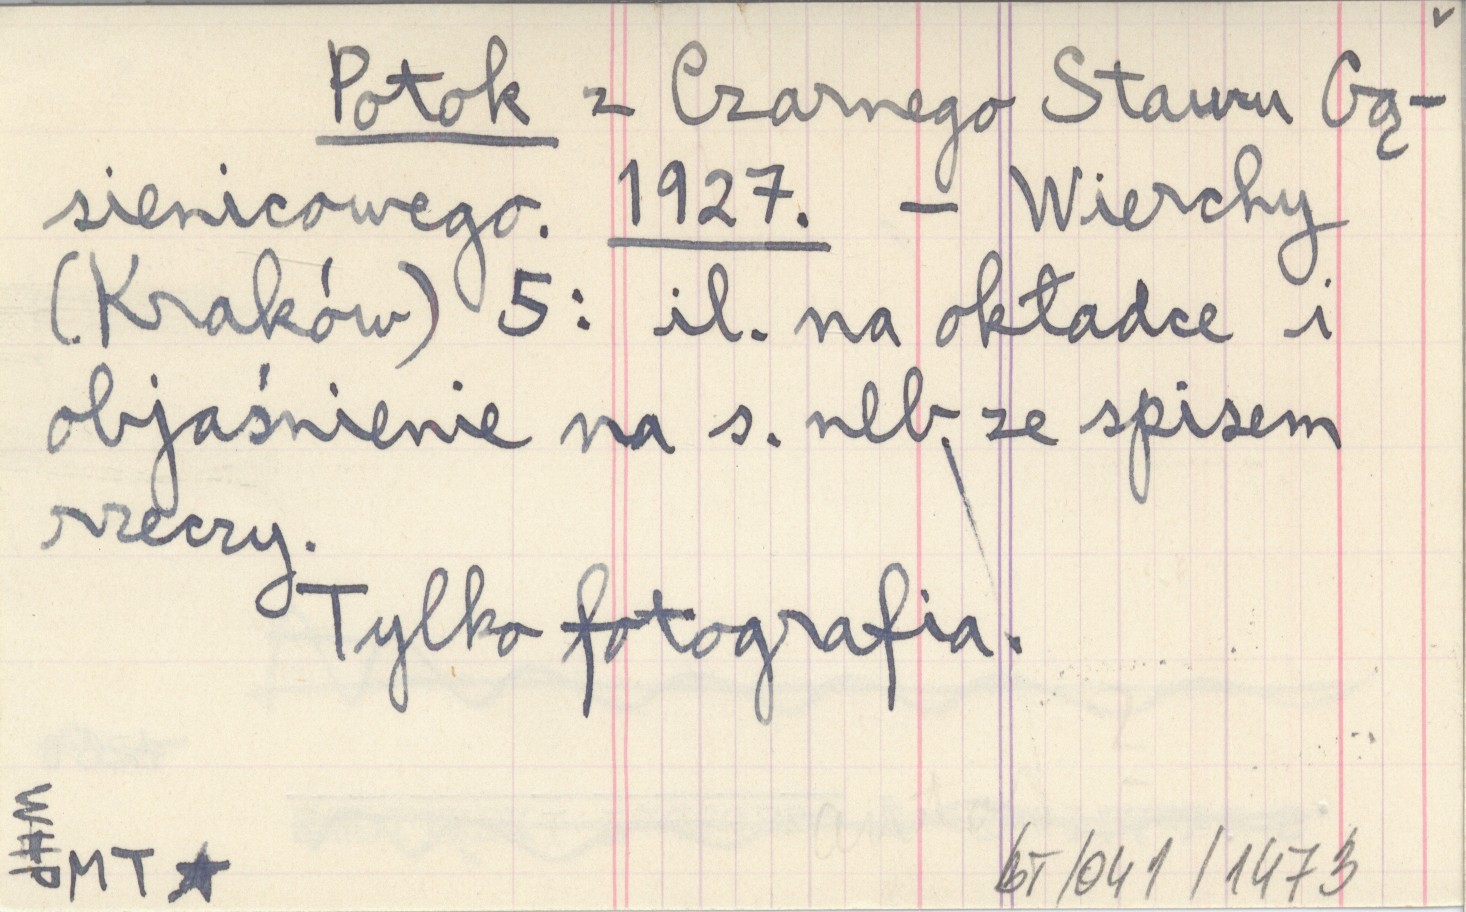 Potok z Czarnego Stawu Gą-
sienicowego. 1927. — Wierchy
(Kraków) 5: il. na okładce i
objaśnienie na s. nlb. ze spisem
rzeczy.
Tylko fotografia.
MT ★
BT/041/1473